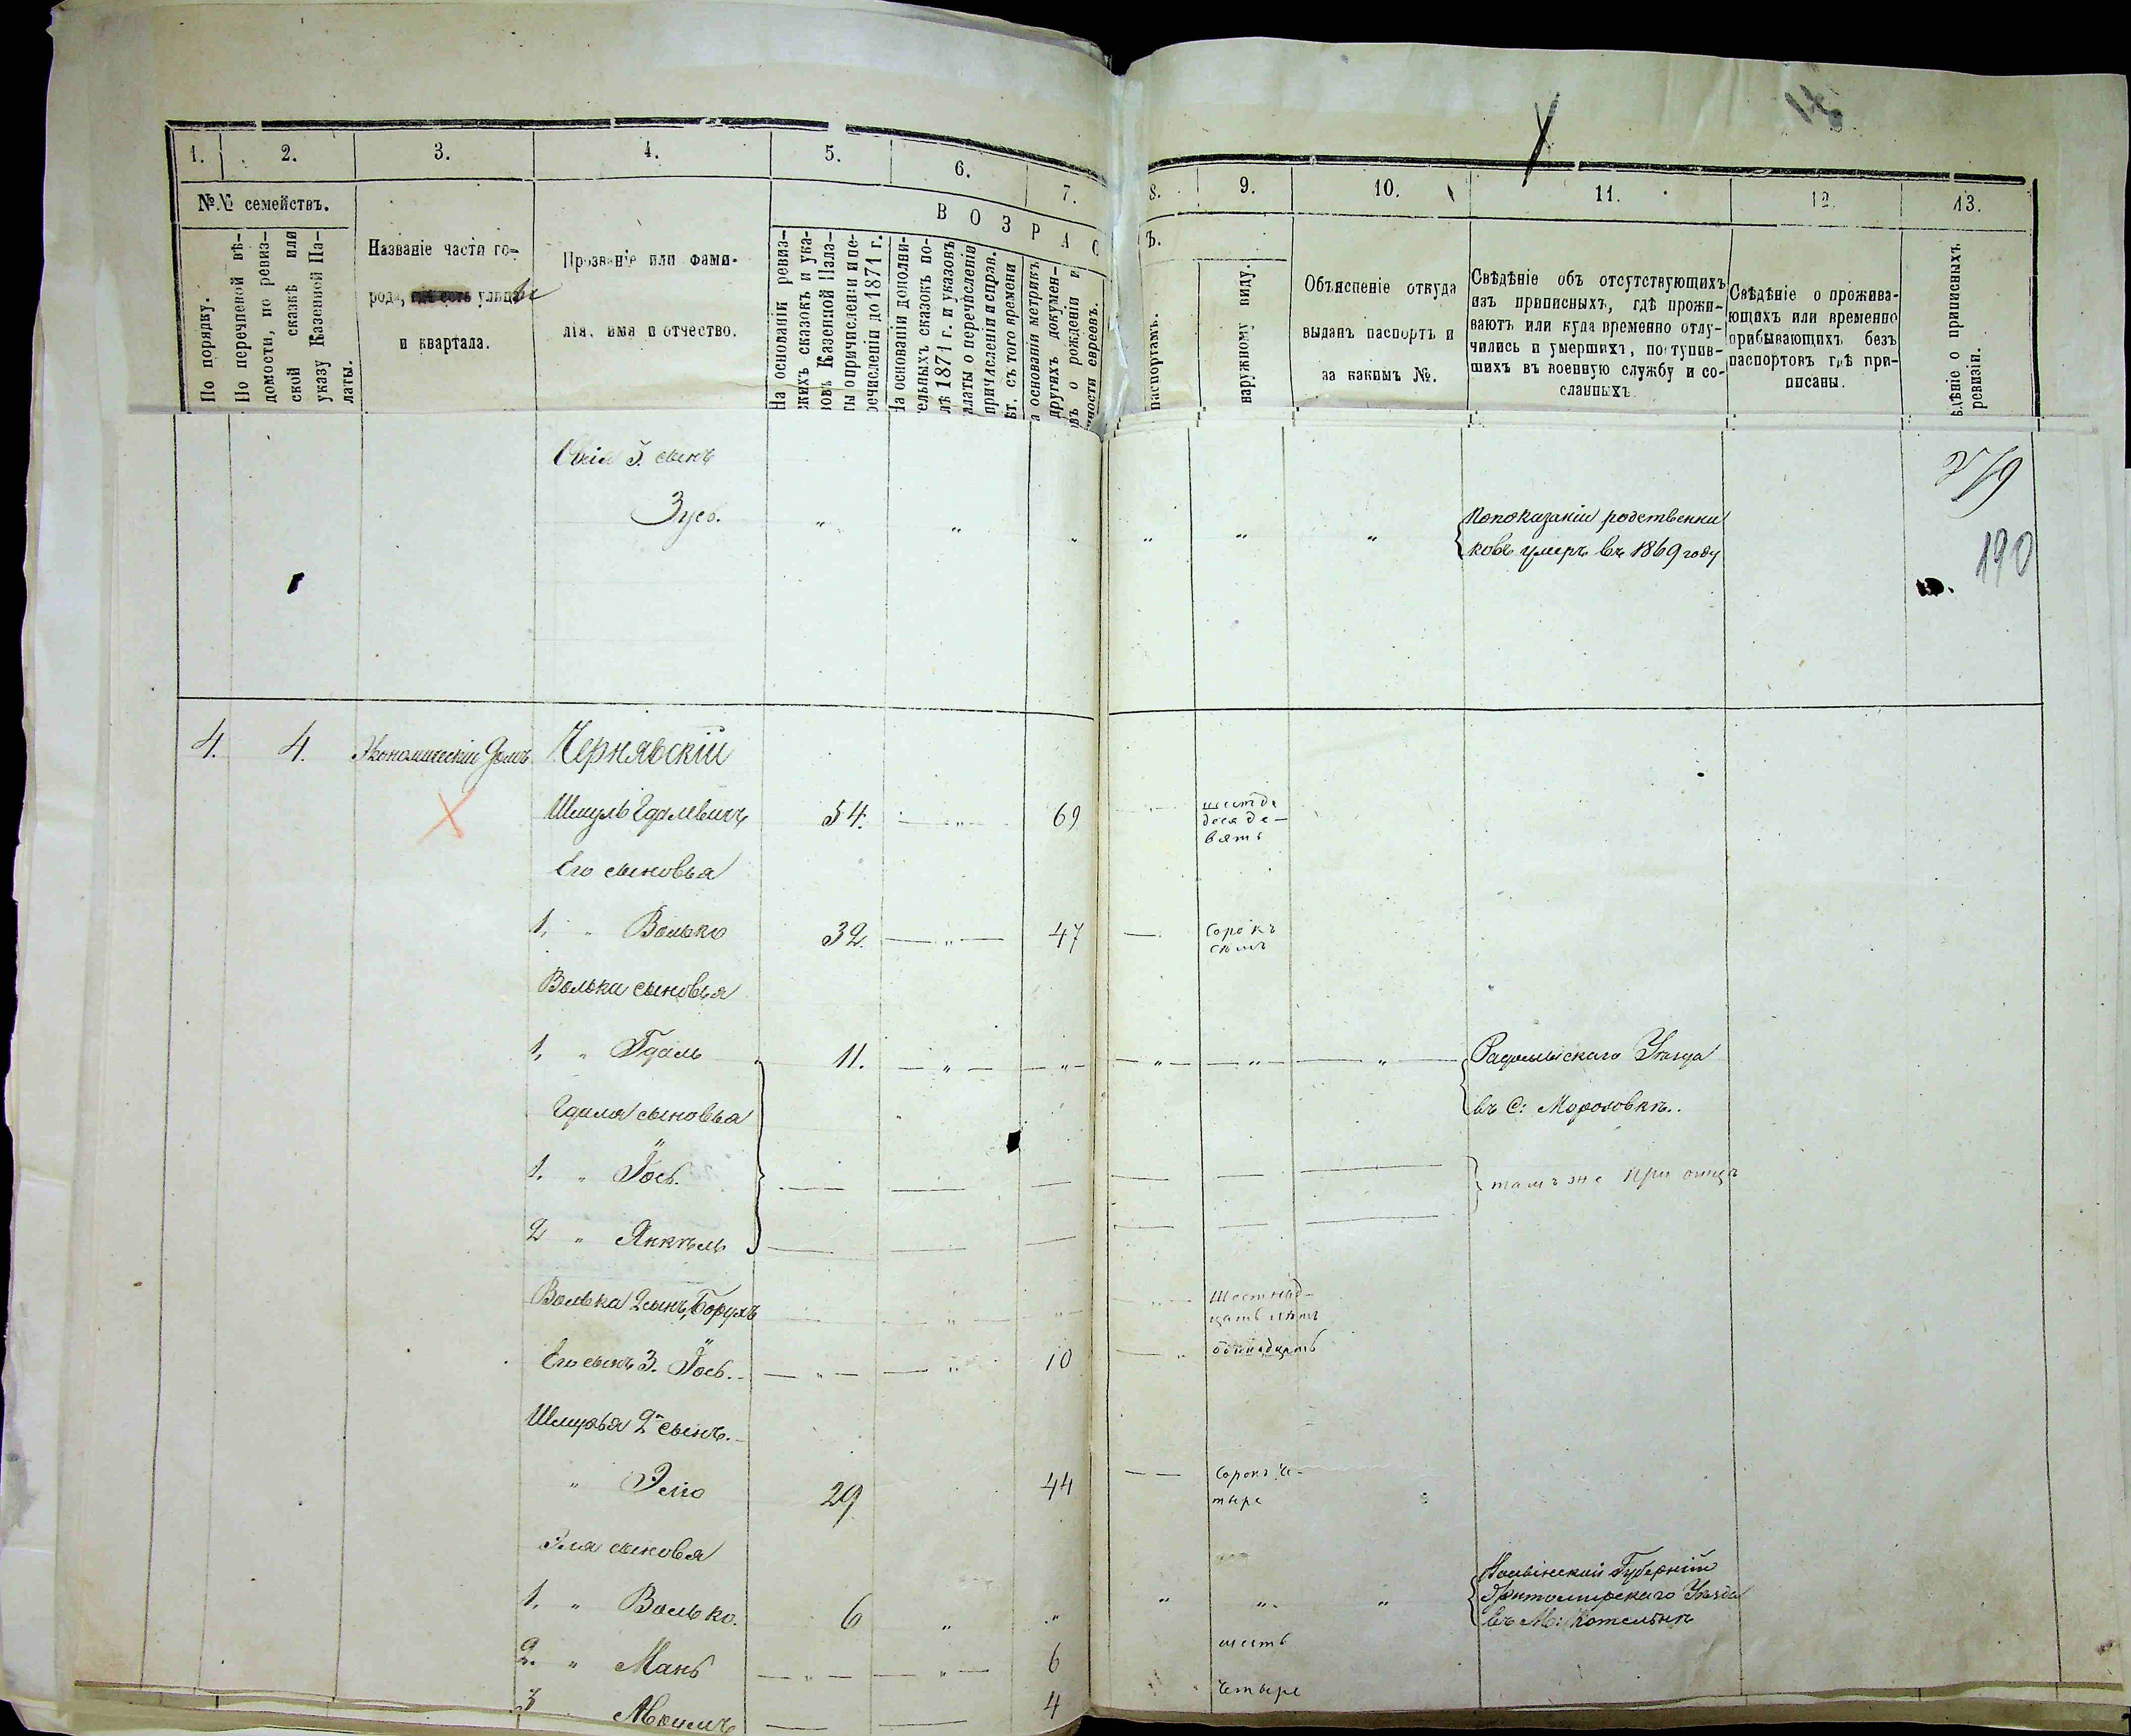 1. 2. 3. 4. 5. 6. 7. 8. 9. 10. 11. 12. 13.
№№ семействъ.
По порядку.
По перечневой вѣ-
домости, по ревиз-
ской сказкѣ или
указу Казенной Па-
латы.
Названіе части го-
рода, улицы
и квартала.
Прозваніе или фами-
лія, имя и отчество.
ВОЗРАС
На основаніи ревиз-
скихъ сказокъ и ука-
зовъ Казенной Пала-
ты о причисленіи и пе-
речисленіи до 1871 г.
На основаніи дополни-
ельныхъ сказокъ по-
лѣ 1871 г. и указовъ
алаты о перечисленіи
причисленіи и справ.
ѣт. съ того времени
а основаніи метрикъ
другихъ докумен-
овъ о рожденіи и
ности евреевъ.
Ъ.
паспортамъ.
наружному виду.
Объясненіе откуда
выданъ паспортъ и
за какимъ №.
Свѣдѣніе объ отсутствующихъ
изъ приписныхъ, гдѣ прожи-
ваютъ или куда временно отлу-
чились и умершихъ, поступив-
шихъ въ военную службу и со-
сланныхъ
Свѣдѣніе о прожива-
ющихъ или временно
прибывающихъ безъ
паспортовъ гдѣ при-
писаны.
ѣдѣніе о приписныхъ
ревизіи.
3. сынъ
Зусь. " " " " " " По показанію родственни
ковъ умеръ въ 1869 году
190
4. 4. Экономическій Домъ Чернявскій
Шмуль Гдалевичъ 54. 69 шестьде
деся де-
вять
Его сыновья
1. " Волько 32. — " — 47 — Сорокъ
семь
Волька сыновья
1, " Гдаль 11. — " — — " — — " — — " — — " — Радомысльскаго Уѣзда
Гдаля сыновья въ С: Морозовкѣ.
1. " Іось. — — — — — — тамъ же при отцѣ
2 " Янкель — — — — — —
Волька 2 сынъ, Борухъ " " Шестнад-
цать лѣтъ
Его сынъ 3. Іось. — " — — " 10 — " одинадцать
Шмуля 2й сынъ.
" Эліо 29 44 — — Сорокъ че-
тыре
Эля сыновья
1. " Волько. 6 " " " " " Волынской Губерніи
Житомирскаго Уѣзда
въ М: Котельнѣ
2. " Мань — " — — " — 6 шесть
3 — — 4 четыре